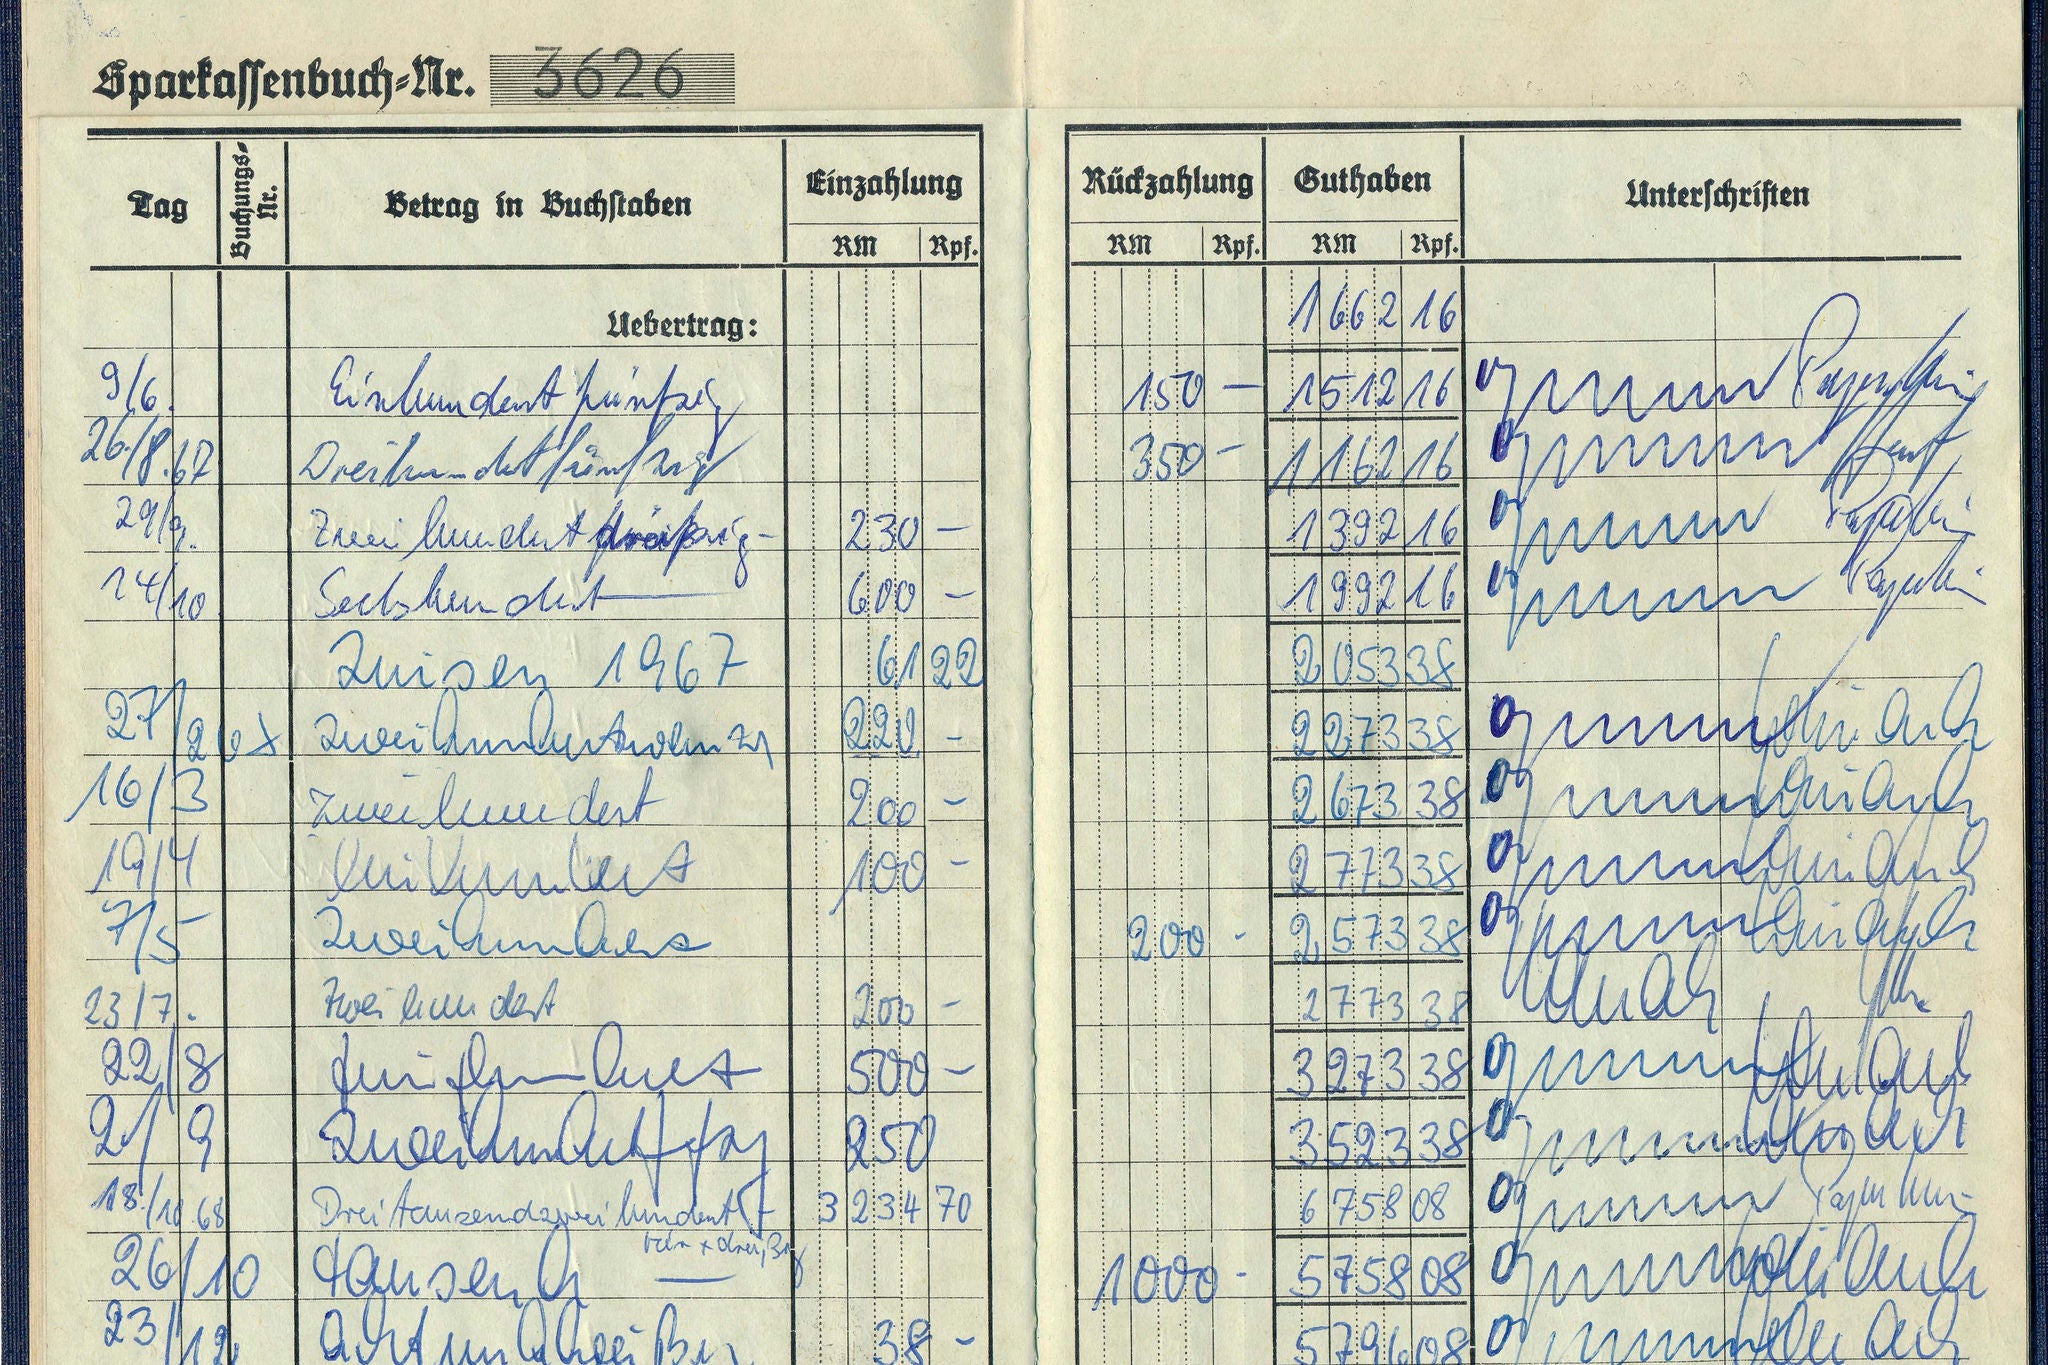 Sparkassenbuch-Nr. 3626
Tag Buchungs-Nr. Betrag in Buchstaben Einzahlung Rückzahlung Guthaben Unterschriften
RM Rpf. RM Rpf. RM Rpf.
Uebertrag: 1662 16
9/6. Einhundertfünfzig 150 – 1512 16
26/8.67 Dreihundertfünfzig 350 – 1162 16
29/9. Zweihundertdreißig – 230 – 1392 16
14/10 Sechshundert 600 – 1992 16
Zinsen 1967 61 22 2053 38
27/2 68 zweihundertzwanzig 220 – 2273 38
16/3 zweihundert 200 – 2673 38
19/4 Einhundert 100 – 2773 38
7/5 Zweihundert 200 - 2573 38
23/7. Zweihundert 200 – 2773 38
22/8 fünfhundert 500 – 3273 38
2/9 zweihundertfünfzig 250 3523 38
18./10.68 Dreitausendzweihundert 3234 70 6758 08
vier + dreißig
26/10 tausend — 1000 - 5758 08
23/12 achtunddreißig 38 – 5796 08